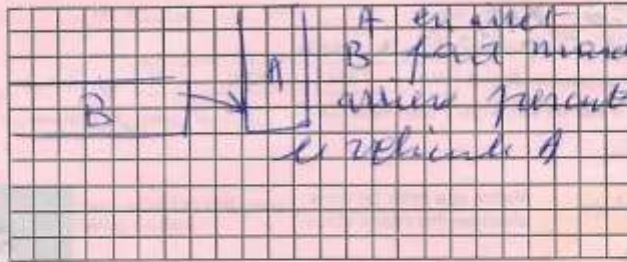 A en arret
B fait marc
arriere percut
le vehicule A
A
B